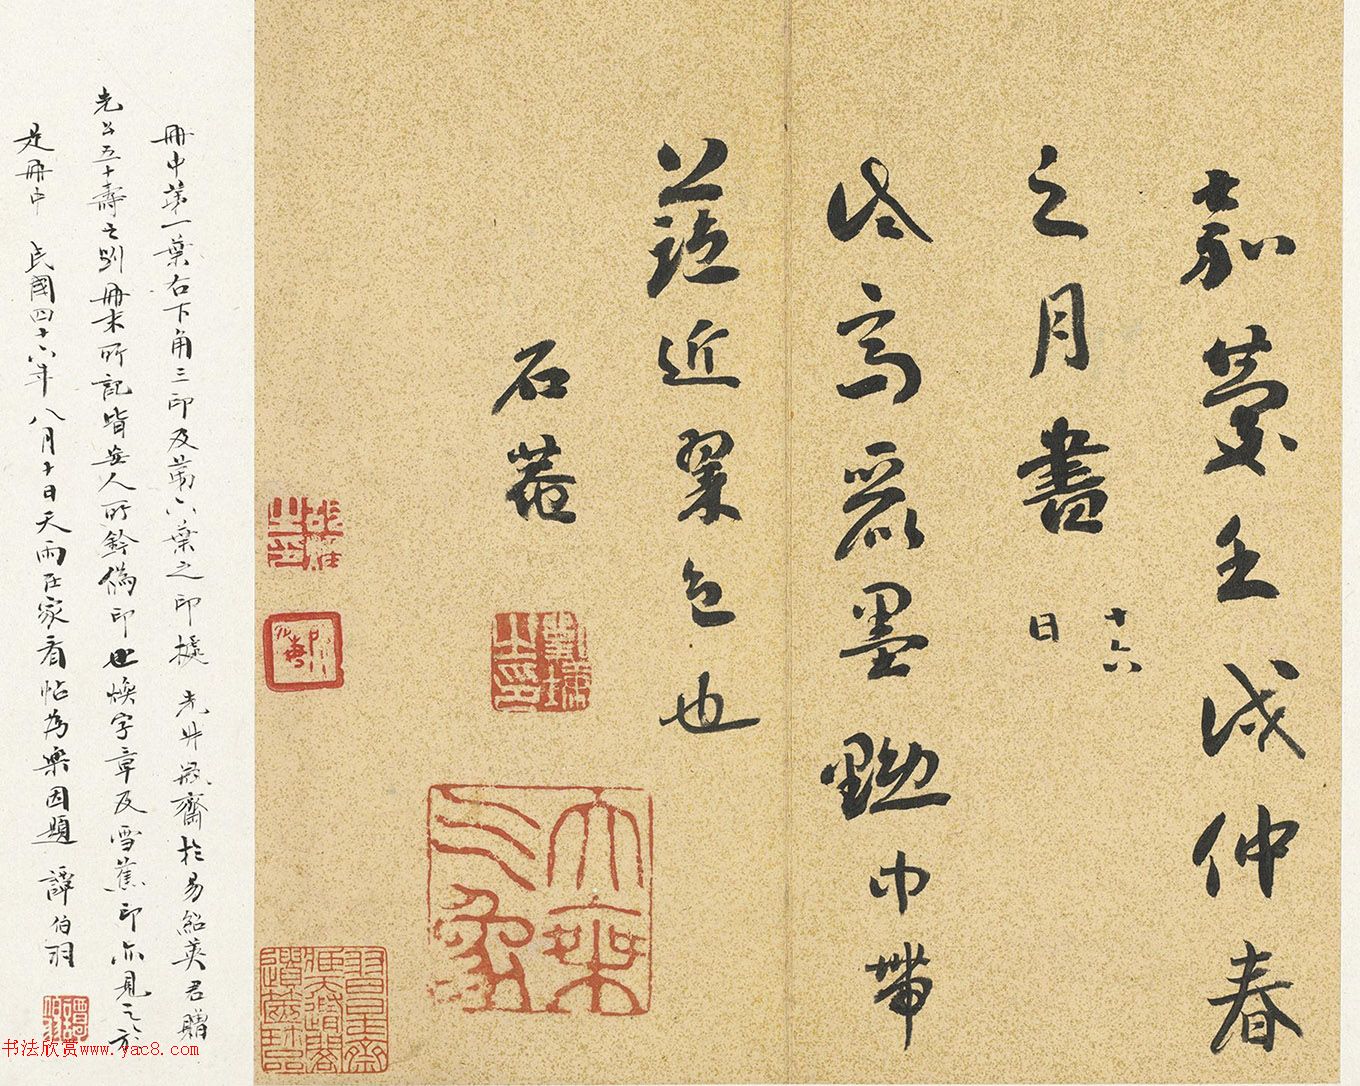 嘉慶壬戌仲春
之月書
十六
日
時高麗墨黝巾帶
近翠色也
石菴
劉墉之印
冊中第一葉右下角三印及第六葉之印擬
光丼殷齋於易紹英君贈
光公五十壽之劉冊末所記皆無人所鈐偽印也煥字章及雪蕉印亦見之於
是冊中 民國四十六年八月十日天雨在家看帖為樂因題 譚伯羽
書法欣赏www.yac8.com